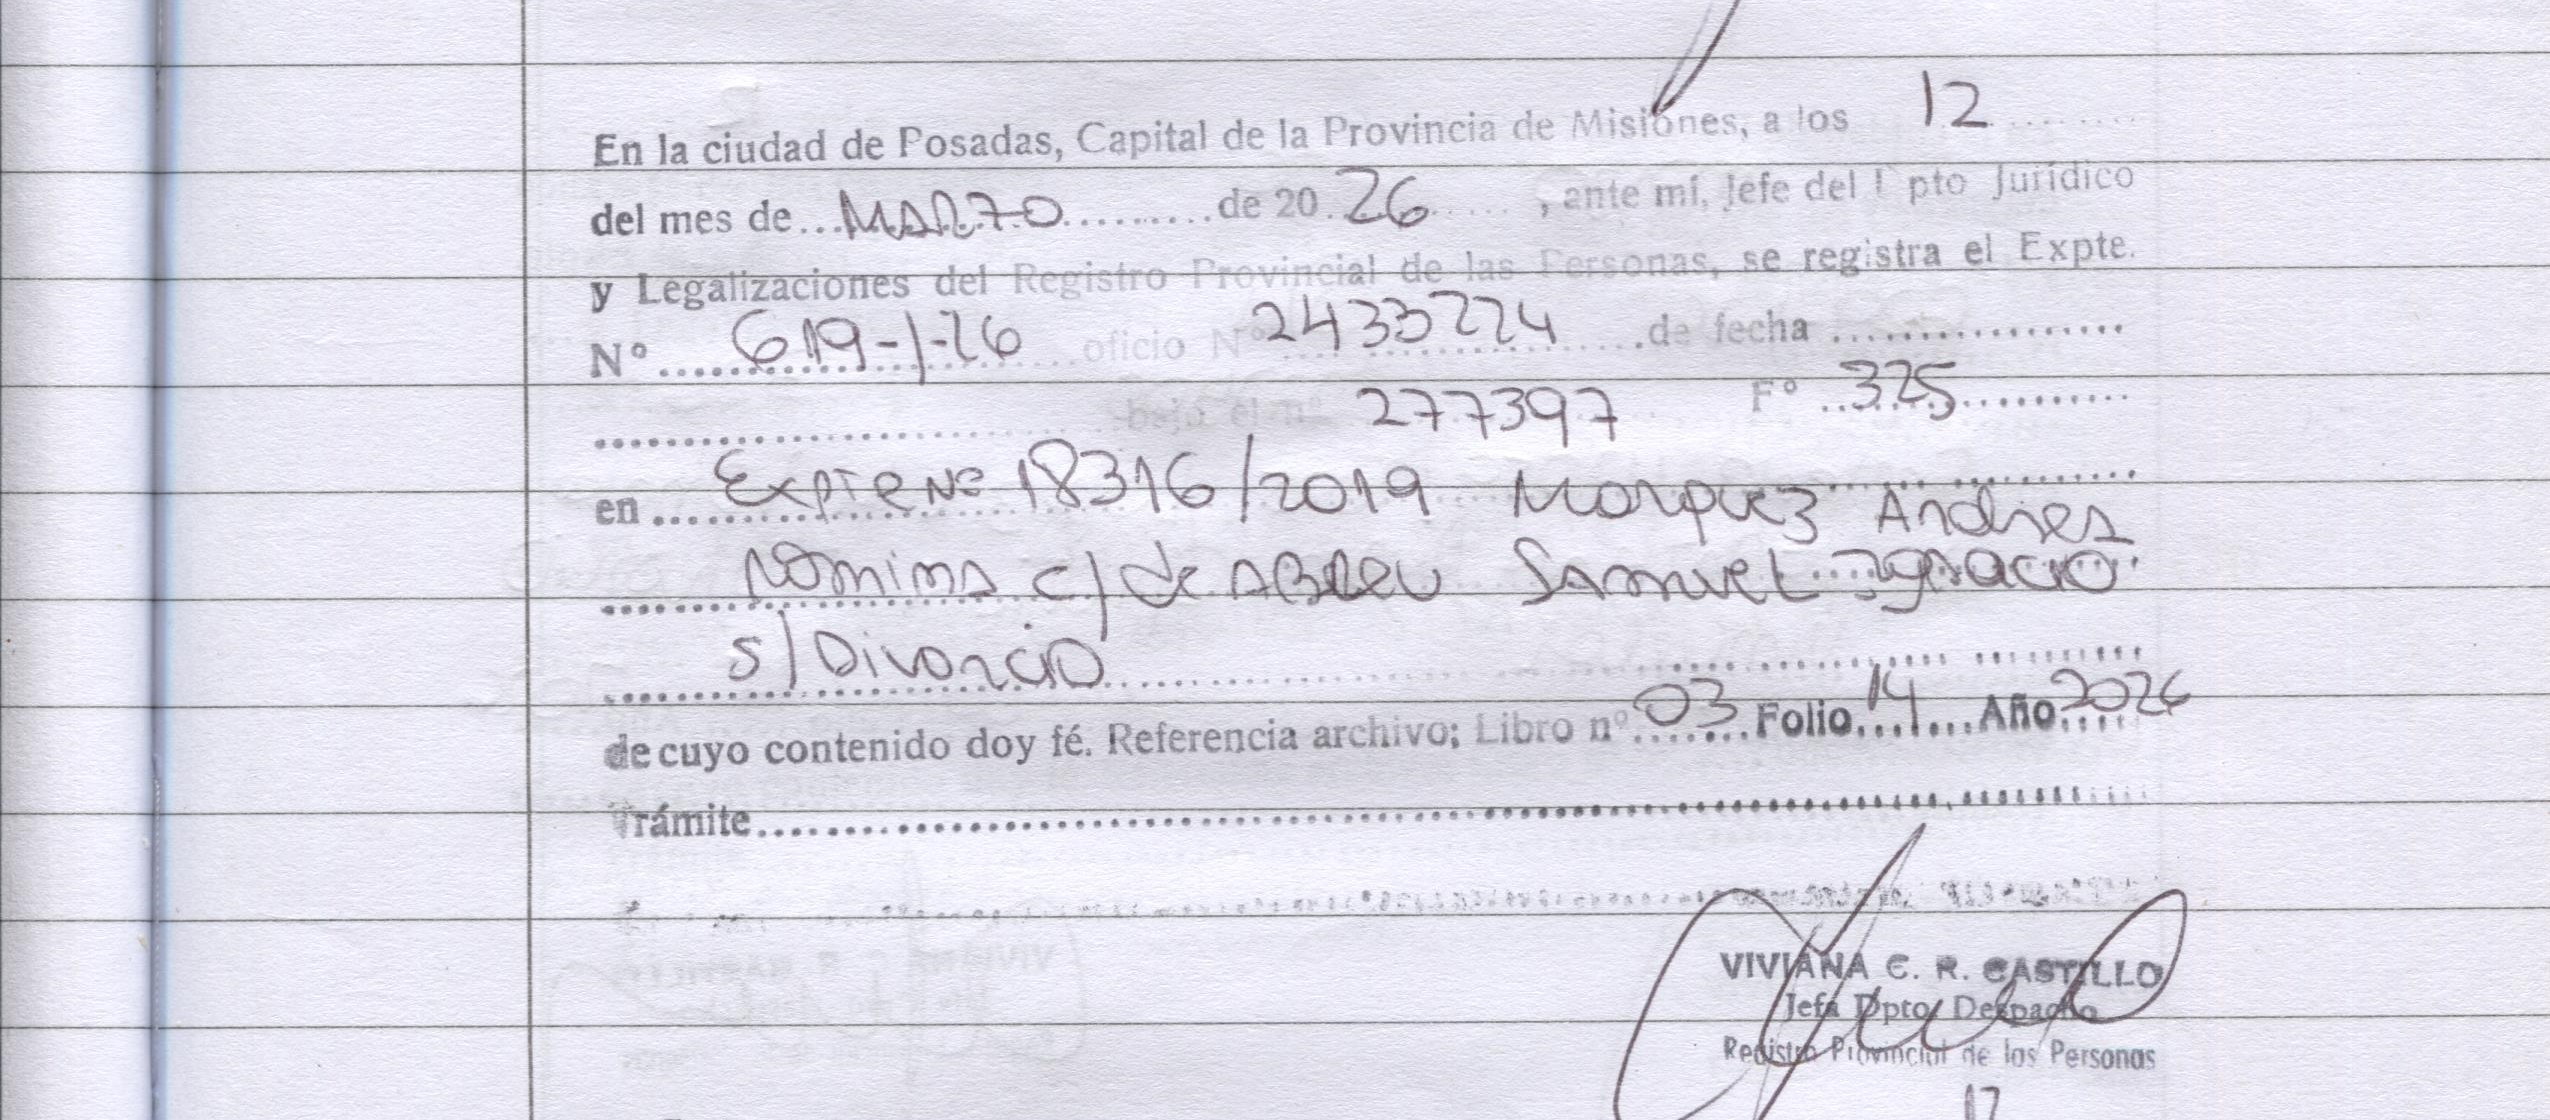 En la ciudad de Posadas, Capital de la Provincia de Misiones, a los 12
del mes de MARZO de 2026, ante mí, Jefe del Dpto Jurídico
y Legalizaciones del Registro Provincial de las Personas, se registra el Expte.
Nº 619-1-26 oficio Nº 2433224 de fecha
bajo el nº 277397 Fº 325
en Expte Nº 18316/2019 Marquez Andrea
Romina c/ de ABREU SAMUEL Ignacio
s/ Divorcio
de cuyo contenido doy fé. Referencia archivo; Libro nº 03 Folio 14 Año 2026
Trámite
VIVIANA C. R. CASTILLO
Jefa Dpto. Despacho
Registro Provincial de las Personas
12